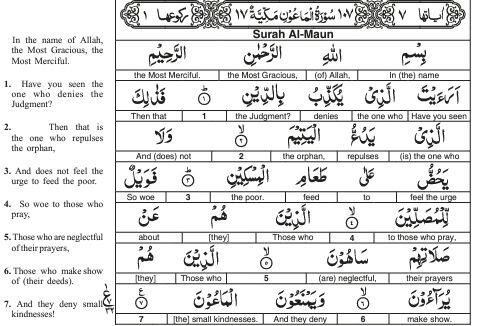 اٰیاتها ٧ ١٠٧ سُوْرَةُ الْمَاعُوْنِ مَكِّیَّةٌ ١٧ رکوعها ١
Surah Al-Maun
In the name of Allah,
the Most Gracious, the
Most Merciful.
1. Have you seen the
one who denies the
Judgment?
2. Then that is
the one who repulses
the orphan,
3. And does not feel the
urge to feed the poor.
4. So woe to those who
pray,
5. Those who are neglectful
of their prayers,
6. Those who make show
of (their deeds).
7. And they deny small
kindnesses!
بِسْمِ اللّٰهِ الرَّحْمٰنِ الرَّحِیْمِ
the Most Merciful. the Most Gracious, (of) Allah, In (the) name
اَرَءَیْتَ الَّذِیْ یُكَذِّبُ بِالدِّیْنِ ١ فَذٰلِكَ
Then that 1 the Judgment? denies the one who Have you seen
الَّذِیْ یَدُعُّ الْیَتِیْمَ ٢ وَلَا
And (does) not 2 the orphan, repulses (is) the one who
یَحُضُّ عَلٰی طَعَامِ الْمِسْكِیْنِ ٣ فَوَیْلٌ
So woe 3 the poor. feed to feel the urge
لِّلْمُصَلِّیْنَ ٤ الَّذِیْنَ هُمْ عَنْ
about [they] Those who 4 to those who pray,
صَلَاتِهِمْ سَاهُوْنَ ٥ الَّذِیْنَ هُمْ
[they] Those who 5 (are) neglectful, their prayers
یُرَآءُوْنَ ٦ وَیَمْنَعُوْنَ الْمَاعُوْنَ ٧
7 [the] small kindnesses. And they deny 6 make show.